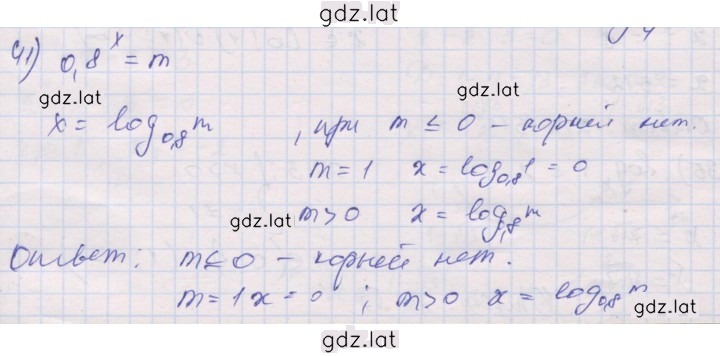 gdz.lat
41) 0,8^x = m
gdz.lat
gdz.lat
x = log_{0,8} m , при m ≤ 0 – корней нет.
m = 1 x = log_{0,8} 1 = 0
gdz.lat
m > 0 x = log_{0,8} m
Ответ: m ≤ 0 – корней нет.
m = 1 x = 0 ; m > 0 x = log_{0,8} m
gdz.lat
gdz.lat